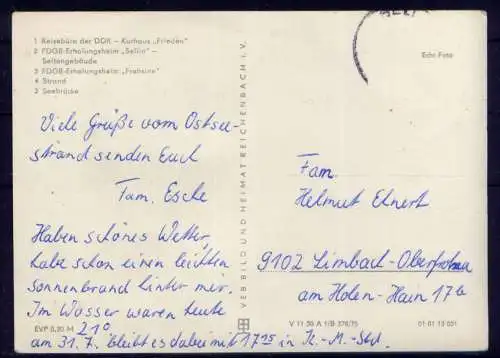 1 Reisebüro der DDR – Kurhaus „Frieden"
2 FDGB-Erholungsheim „Sellin" –
Seitengebäude
3 FDGB-Erholungsheim „Frohsinn"
4 Strand
5 Seebrücke
Viele Grüße vom Ostsee-
strand senden Euch
Fam. Esche
Haben schönes Wetter,
habe schon einen leichten
sonnenbrand hinter mir.
Im Wasser waren heute
21°
am 31.7. bleibt es dabei mit 17²⁵ in K.-M.-Std.
EVP 0,20 M
VEB BILD UND HEIMAT REICHENBACH I. V.
Echt Foto
Fam.
Helmut
9102 Limbach-Oberfrohna
am Hohen-Hain 17b
V 11 50 A 1/B 378/75
01 01 13 051